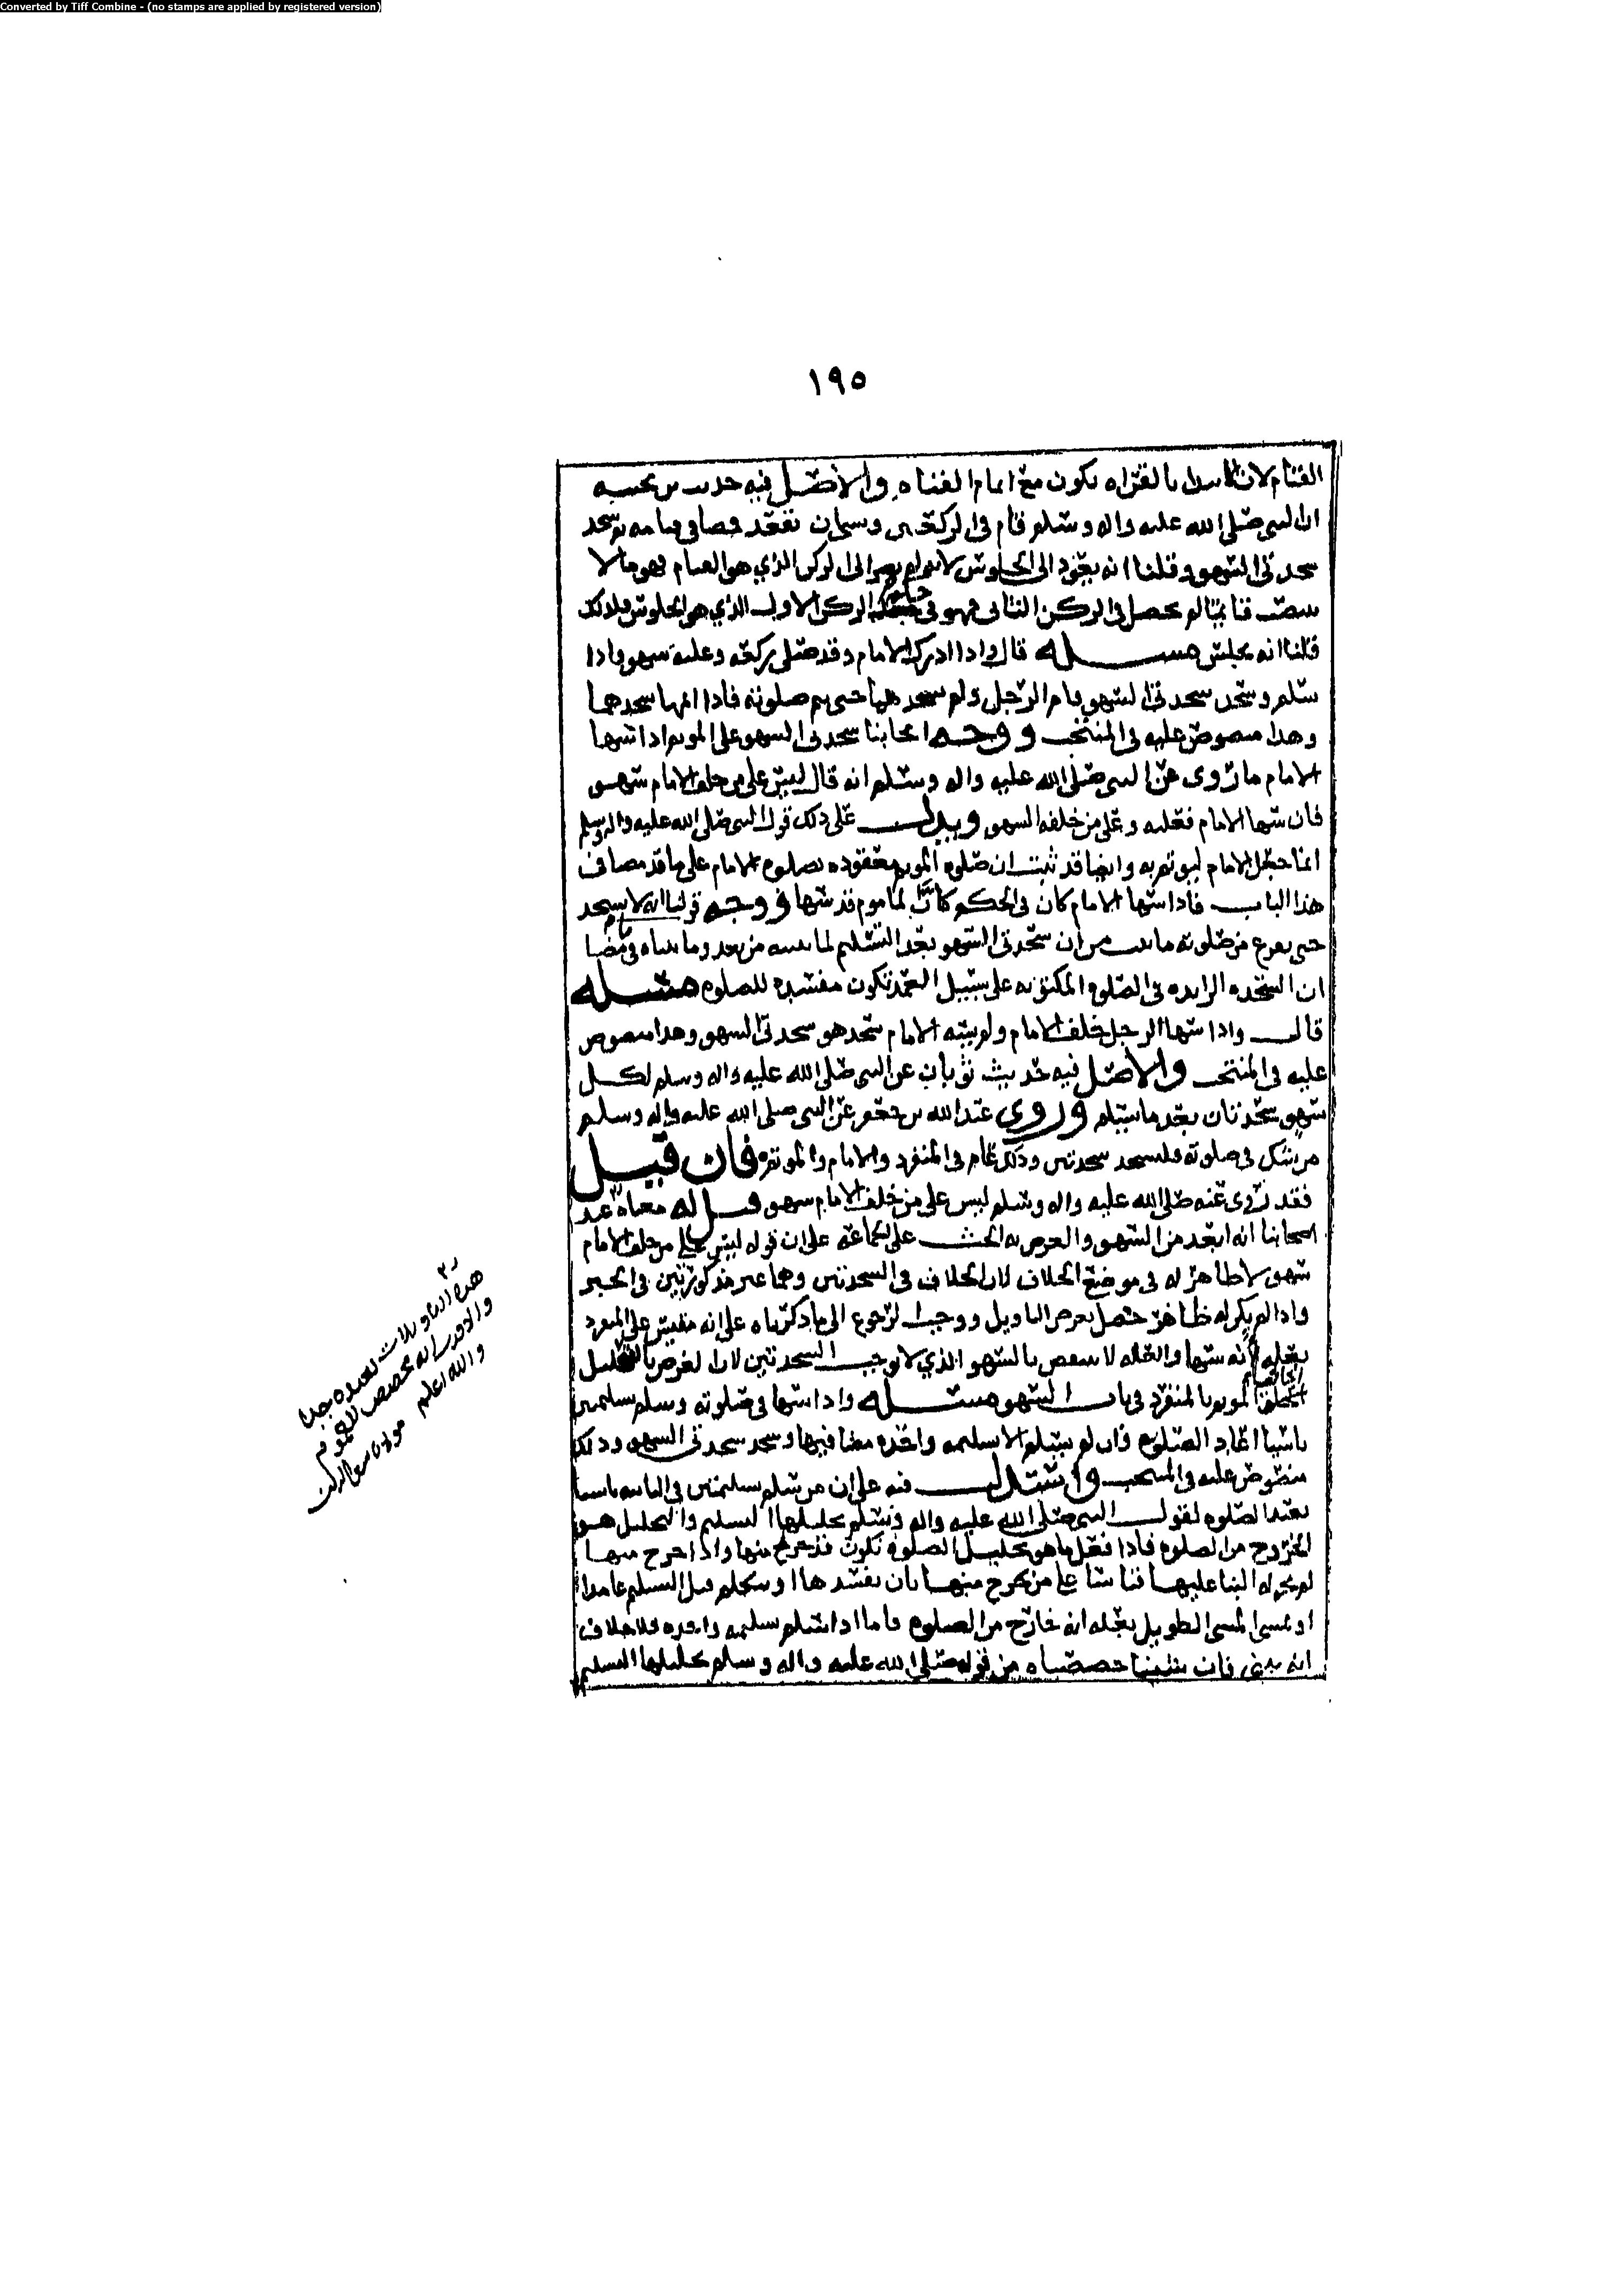 Converted by Tiff Combine - (no stamps are applied by registered version)
١٩٥
القيام لان الابتدا بالقراه يكون مع اتمام القيام والأصل فيه حديث بن بحينه
ان النبي صلى الله عليه واله وسلم قام في الركعتين ونسي ان يقعد فمضا في قيامه ثم سجد
سجدتي السهو وقلنا انه يعود الى الجلوس لانه لم يصر الى الركن الذي هو القيام فهو ما لا
ينتصب قائما لم يحصل في الركن الثاني فهو في الركن الاول الذي هو الجلوس فلذلك
قلنا انه يجلس مسله قال واذا ادرك الامام وقد صلى ركعه وعليه سهو فاذا
سلم وسجد سجدتي السهو قام الرجل ولم يسجدهما حتى يتم صلوته فاذا اتمها سجدهما
وهذا منصوص عليه في المنتخب ووجه ايجابنا سجدتي السهو على الموتم اذا سها
الامام ما روى عن النبي صلى الله عليه واله وسلم انه قال ليس على من خلف الامام سهو
فان سها الامام فعليه وعلى من خلفه السهو ويدل على ذلك قول النبي صلى الله عليه واله وسلم
انما جعل الامام ليوتم به وايضا قد ثبت ان صلوه الموتم معقوده بصلوه الامام على ما قد مضا في
هذا الباب فاذا سها الامام كان في الحكم كأن المأموم قد سها ووجه قولنا انه لا يسجد
حتى يفرغ من صلوته ما ثبت من ان سجدتي السهو بعد التسليم لما نبينه من بعد وما بيناه فيما مضا
ان السجده الزايده في الصلوه المكتوبه على سبيل العمد تكون مفسده للصلوه مسله
قال واذا سها الرجل خلف الامام ولم يسه الامام سجد هو سجدتي السهو وهذا منصوص
عليه في المنتخب والأصل فيه حديث ثوبان عن النبي صلى الله عليه واله وسلم لكل
سهو سجدتان بعد ما يسلم وروى عبد الله بن جعفر عن النبي صلى الله عليه واله وسلم
من شك في صلوته فليسجد سجدتين وذلك عام في المنفرد والامام والموتم فان قيل
فقد روى عنه صلى الله عليه واله وسلم ليس على من خلف الامام سهو قيل له معناه عند
اصحابنا انه ابعد من السهو والغرض به الحث على الجماعه على ان قوله ليس على من خلف الامام
سهو لا ظاهر له في موضع الخلاف لان الخلاف في السجدتين وهما غير مذكورتين في الخبر
واذا لم يكن له ظاهر حمل بعرض التاويل ووجب الرجوع الى ما ذكرناه على انه مقيس على المنفرد
بعله انه سها والعله لا تنتقض بالسهو الذي لا يوجب السجدتين لان الغرض بالتعليل
الحاق الموتم بالمنفرد في باب السهو مسله واذا سها في صلوته وسلم تسليمتين
ناسيا اعاد الصلوه فان لم يسلم الا تسليمه واحده مضا فيها وسجد سجدتي السهو وذلك
منصوص عليه في المنتخب واستدل فيه على ان من سلم تسليمتين في الثانيه ناسيا
يعيد الصلوه لقول النبي صلى الله عليه واله وسلم تحليلها التسليم والتحليل هو
الخروج من الصلوه فاذا فعل ما هو تحليل الصلوه يكون قد خرج منها واذا خرج منها
لم يجز له البنا عليها قياسا على من يخرج منها بان يفسدها او يتكلم قبل التسليم عامدا
او يمشي المشي الطويل بعله انه خارج من الصلوه فاما اذا سلم تسليمه واحده فلا خلاف
انه يبني فان شينا خصصناه من قوله صلى الله عليه واله وسلم تحليلها التسليم
هذه التاويلات بعيده جدا
والاقرب انه مخصص للعموم
والله اعلم